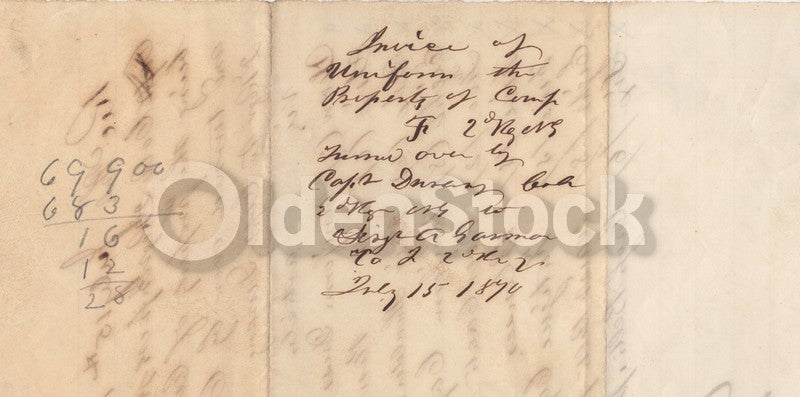 Invice of
Uniform the
Property of Comp
F 2d Rg NG
Turned over by
Capt Co
2d Rg NG to
Sergt A Gorman
Co F 2d Reg
July 15 1870
69 900
683
16
12
28
OldenStock